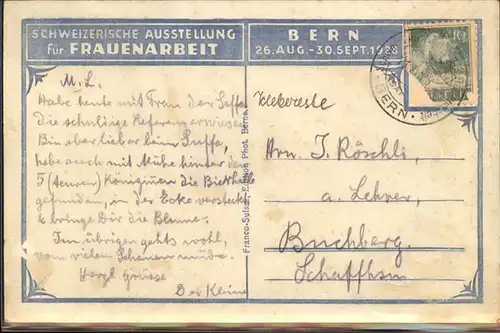 SCHWEIZERISCHE AUSSTELLUNG
für FRAUENARBEIT
BERN
26. AUG.-30. SEPT. 1928
10
BERN
M. L.
Habe heute mit Frau der Saffa
die schuldige Referenz erwiesen
Bin aber lieber beim Suffa,
habe auch mit Mühe hinter den
5 (teuren) Königinnen die Bierhalle
gefunden, in der Ecke versteckt
& bringe Dir die Blume.
Im übrigen gehts wohl,
vom vielen Schauen müde.
Herzl Grüsse
Der Kleine
Franco-Suisse, Edition Phot. Berne.
Klebereste
Hrn. J. Röschli,
a. Lehrer,
Buchberg.
Schaffhsn